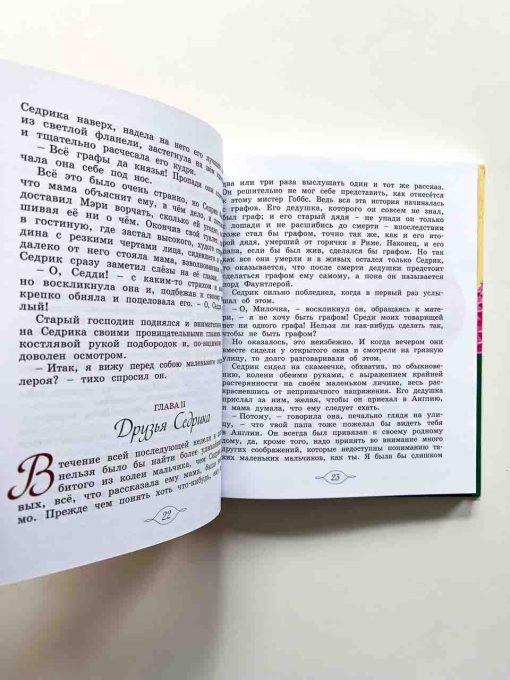 Седрика наверх, надела на него его лучший
из светлой фланели, застегнула на нём
и тщательно расчесала его кудри.
– Всё графы да князья! Пропади они
чала она себе под нос.
Всё это было очень странно, но Седрик
что мама объяснит ему, в чём дело, и
доставил Мэри ворчать, сколько ей угодно,
шивая её ни о чём. Окончив свой туалет,
в гостиную, где застал высокого, худого
дина с резкими чертами лица, сидевшего
далеко от него стояла мама, взволнованная
Седрик сразу заметил слёзы на её глазах.
– О, Седди! – с каким-то страхом и
но воскликнула она и, подбежав к своему
крепко обняла и поцеловала его. – О, Седди,
лый!
Старый господин поднялся и внимательно
на Седрика своими проницательными глазами
костлявой рукой подбородок и, по-видимому,
доволен осмотром.
– Итак, я вижу перед собой маленького
лероя? – тихо спросил он.
ГЛАВА II
Друзья Седрика
В течение всей последующей недели в
нельзя было бы найти более удивлённого
битого из колеи мальчика, чем Седрик.
вых, всё, что рассказала ему мама, было
мо. Прежде чем понять хоть что-нибудь, ему
22
два или три раза выслушать один и тот же рассказ.
Он решительно не мог себе представить, как отнесётся
к этому мистер Гоббс. Ведь вся эта история начиналась
с графов. Его дедушка, которого он совсем не знал,
был граф; и его старый дядя – не упади он только
с лошади и не расшибись до смерти – впоследствии
тоже стал бы графом, точно так же, как и его вто-
рой дядя, умерший от горячки в Риме. Наконец, и его
папа, если бы был жив, сделался бы графом. Но так
как все они умерли и в живых остался только Седрик,
то оказывается, что после смерти дедушки предстоит
сделаться графом ему, а пока он называется
лорд Фаунтлерой.
Седрик сильно побледнел, когда в первый раз услы-
шал об этом.
– О, Милочка, – воскликнул он, обращаясь к мате-
ри, – я не хочу быть графом! Среди моих товарищей
нет ни одного графа! Нельзя ли как-нибудь сделать так,
чтобы не быть графом?
Но оказалось, это неизбежно. И когда вечером они
вместе сидели у открытого окна и смотрели на грязную
улицу, то долго разговаривали об этом.
Седрик сидел на скамеечке, обхватив, по обыкнове-
нию, колени обеими руками, с выражением крайней
растерянности на своём маленьком личике, весь рас-
красневшись от непривычного напряжения. Его дедушка
прислал за ним, желая, чтобы он приехал в Англию,
и мама думала, что ему следует ехать.
– Потому, – говорила она, печально глядя на ули-
цу, – что твой папа тоже пожелал бы видеть тебя
в Англии. Он всегда был привязан к своему родному
дому, да, кроме того, надо принять во внимание много
других соображений, которые недоступны пониманию та-
ких маленьких мальчиков, как ты. Я была бы слишком
23